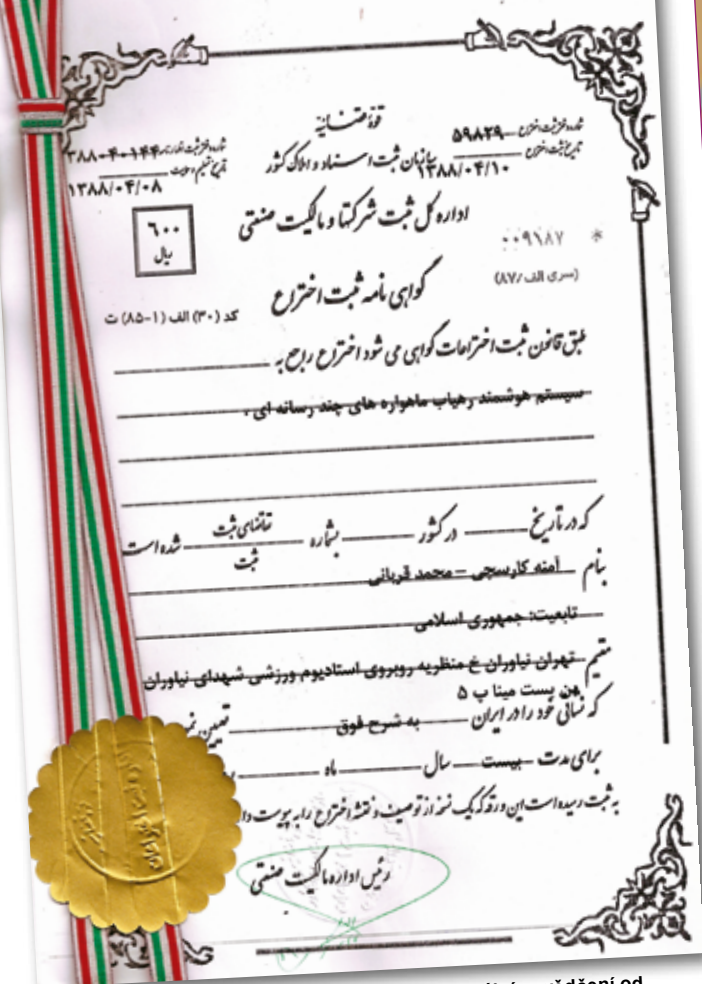 قوهٔ قضائیه
سازمان ثبت اسناد و املاک کشور
شماره دفتر ثبت اختراع ۵۹۸۲۹
تاریخ ثبت اختراع ۱۳۸۸/۰۴/۱۰
۱۳۸۸/۰۴/۰۸
اداره کل ثبت شرکتها و مالکیت صنعتی
۶۰۰
ریال
۰۰۹۱۸۷ *
(سری الف/۸۷)
گواهی نامه ثبت اختراع
کد (۳۰) الف (۱-۸۵) ت
طبق قانون ثبت اختراعات گواهی می شود اختراع راجع به
سیستم هوشمند رهیاب ماهواره های چند رسانه ای .
که در تاریخ در کشور بشماره تقاضای ثبت
ثبت شده است
بنام آمنه کارسجی - محمد قربانی
تابعیت: جمهوری اسلامی
مقیم تهران نیاوران خ منظریه روبروی استادیوم ورزشی شهدای نیاوران
بن بست مینا پ ۵
که نشانی خود را در ایران به شرح فوق
برای مدت بیست سال ماه
به ثبت رسیده است این ورقه که یک نسخه از توصیف و نقشه اختراع را به پیوست
رئیس اداره مالکیت صنعتی